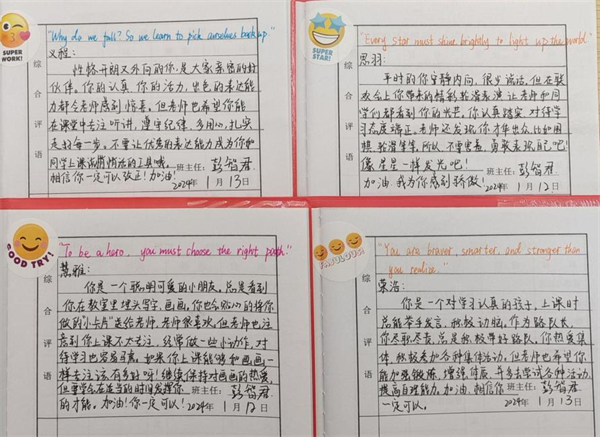 SUPER WORK!
"Why do we fall? So we learn to pick ourselves back up."
综合评语
义程：
性格开朗又外向的你,是大家亲密的好
伙伴。你的认真 你的活力,出色的表达能
力都令老师感到惊喜。但老师也希望你能
在课堂中专注听讲,遵守纪律,多用心,扎实
走好每一步。不要让优秀的表达能力成为你和
同学上课说悄悄话的工具哦。班主任：彭智君
相信你一定可以改正!加油!
2024年 1月 13日
SUPER STAR!
"Every star must shine brightly to light up the world."
综合评语
思羽：
平时的你安静内向,很少说话,但在联
欢会上你带来的精彩轮滑表演让老师和同
学们都看到你的光芒。你认真踏实,对待学
习态度端正。老师还发现你才华出众,比如围
棋、轮滑等等,所以,不要害羞,勇敢表现自己吧!
像星星一样发光吧! 班主任：彭智君
加油 我为你感到骄傲!
2024年 1月 12日
GOOD TRY!
"To be a hero, you must choose the right path."
综合评语
慧雅：
你是一个聪明可爱的小朋友。总是看到
你在教室里埋头写字、画画。你也会贴心的将你
做的小卡片送给老师,老师很喜欢。但老师也注
意到你上课不太专注,经常做一些小动作,对
待学习也容易马虎。如果你上课能够和画画一
样专注该有多好呀!继续保持对画画的热爱,
但要学会在适当的时间发挥你 班主任：彭智君
的才能。加油!你一定可以!
2024年 1月 12日
FABULOUS!
"You are braver, smarter, and stronger than
you realize."
综合评语
杲浩：
你是一个对学习认真的孩子,上课时
总能举手发言,积极动脑。作为路队长,
你尽职尽责,总是积极带好路队,你热爱集
体,积极参加各种集体活动。但老师也希望你
能加强锻炼,增强体质,并多去尝试各种活动,
提高自理能力。加油,相信你 班主任：彭智君
一定可以。
2024年 1月 13日